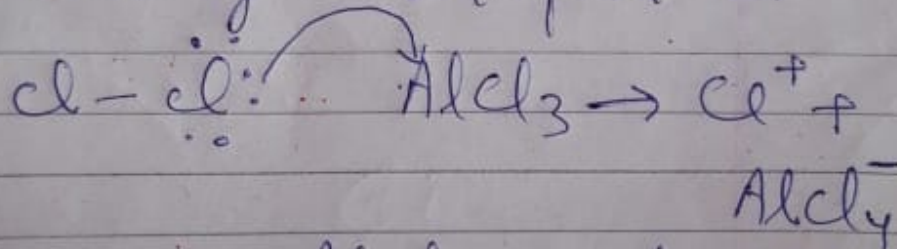 Cl - Cl: AlCl3 → Cl+ +
AlCl4-